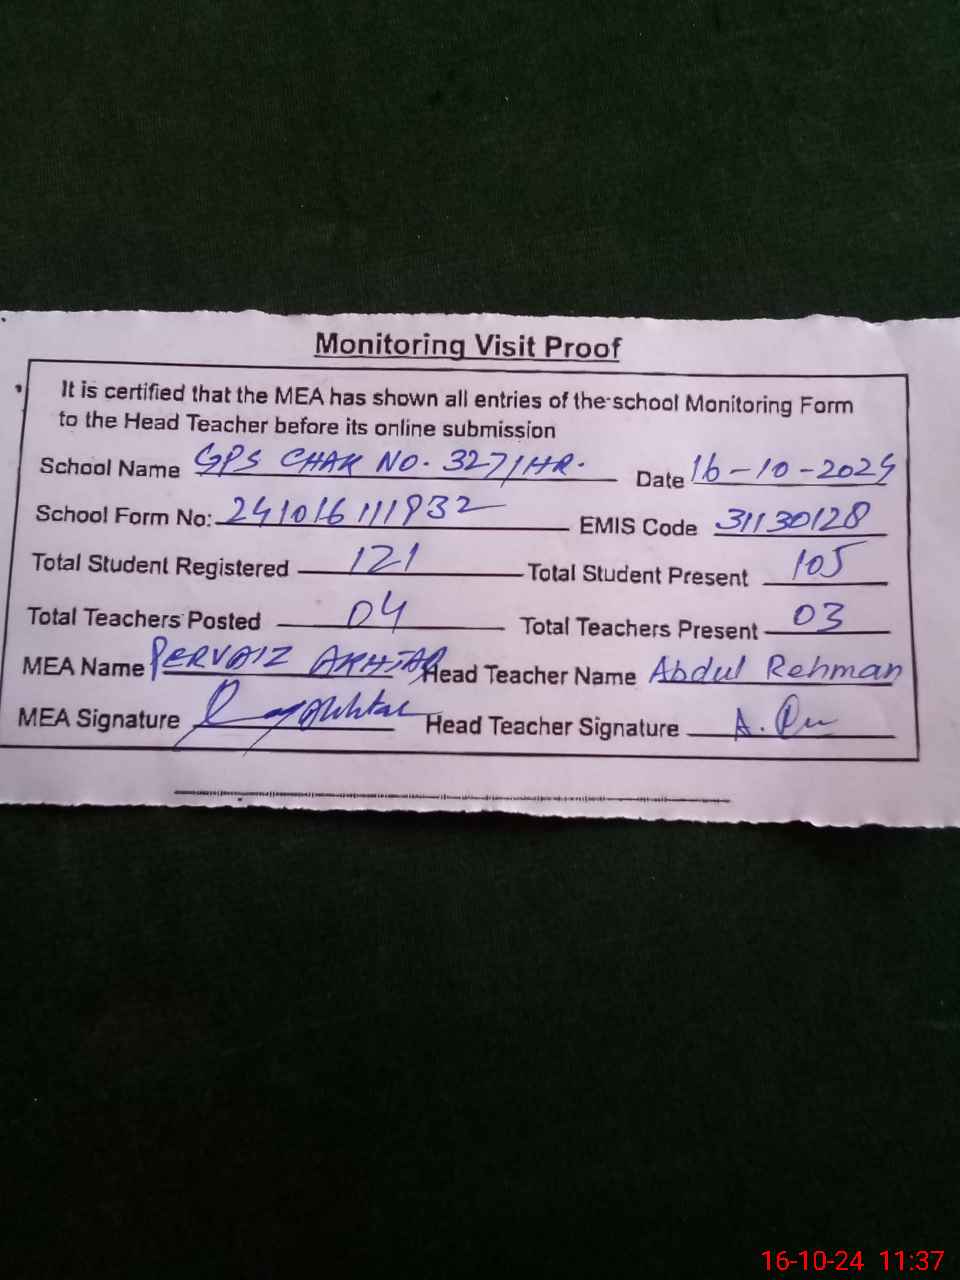 Monitoring Visit Proof
It is certified that the MEA has shown all entries of the school Monitoring Form
to the Head Teacher before its online submission
School Name GPS CHAK NO. 327/HR. Date 16-10-2024
School Form No: 241016111932 EMIS Code 31130128
Total Student Registered 121 Total Student Present 105
Total Teachers Posted 04 Total Teachers Present 03
MEA Name PERVAIZ AKHTAR Head Teacher Name Abdul Rehman
MEA Signature Head Teacher Signature
16-10-24 11:37